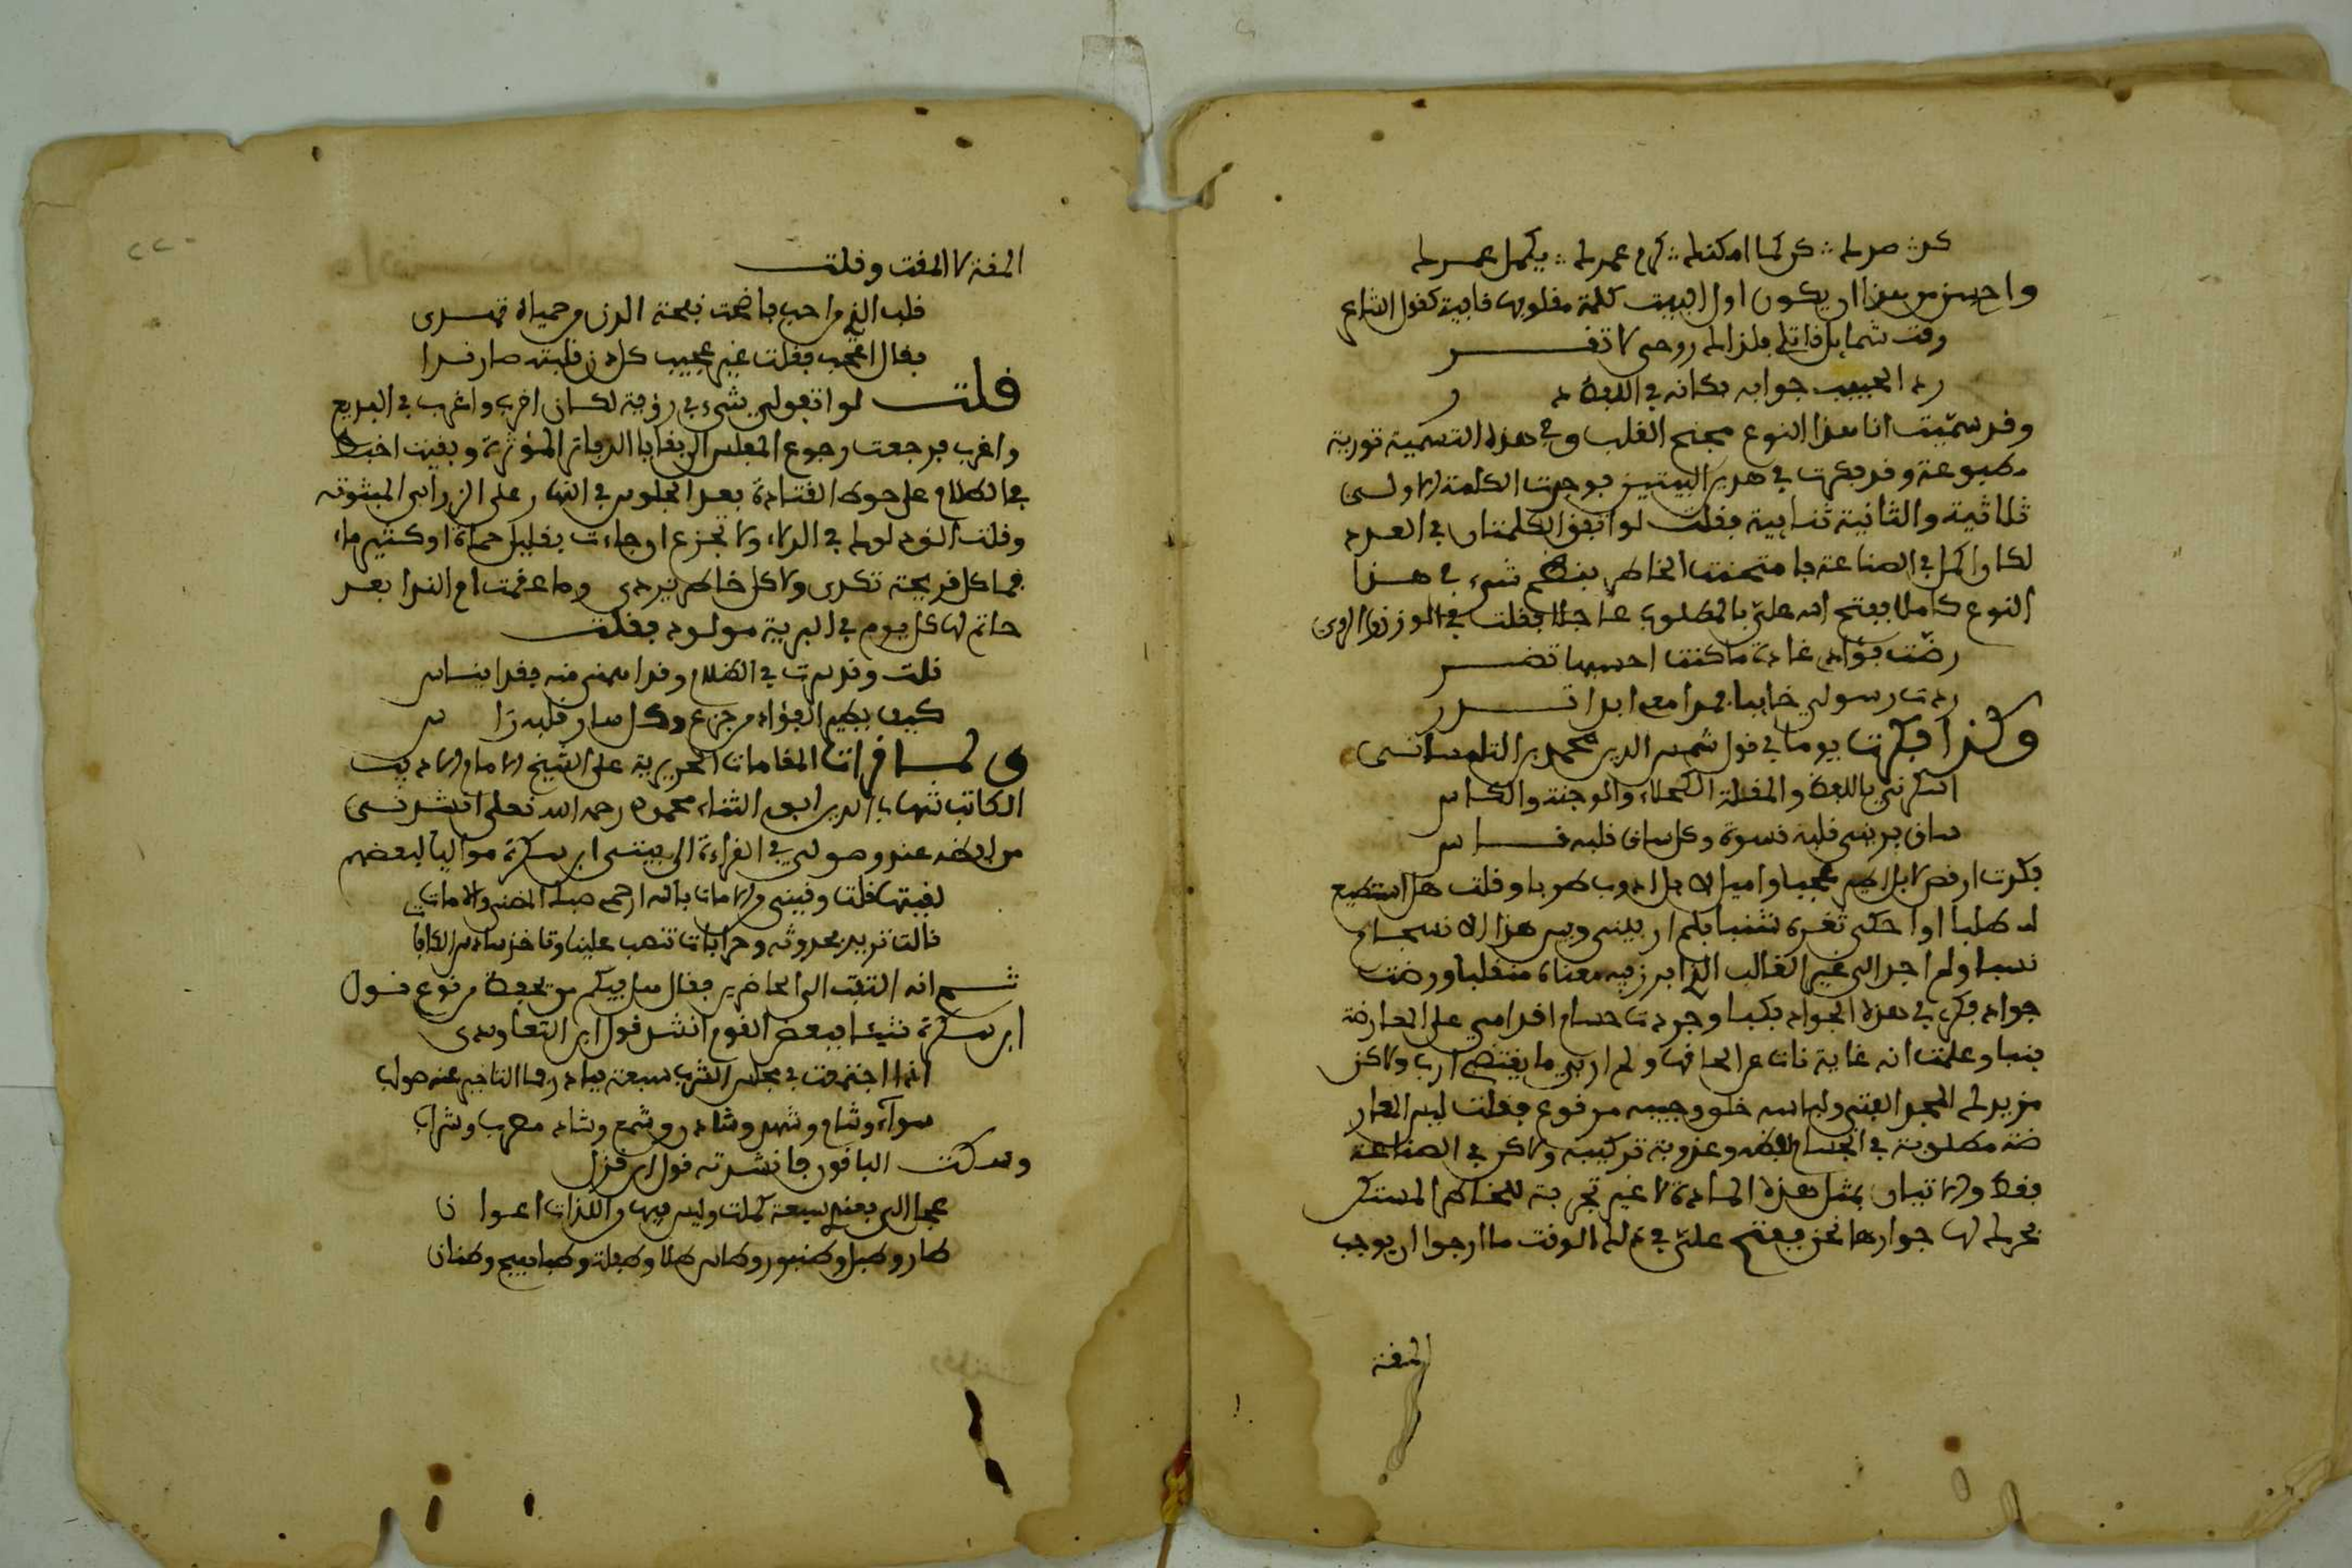 واحسن من هذا ان يكون اول البيت كلمة مقلوبها قافية كقول الشاعر
رقت شمايل قاتلي فلذاك روحي لا تقر
رد الحبيب جوابه فكانه في اللفظ در
وقد سميت انا هذا النوع مجنح القلب وفي هذه التسمية تورية
مطبوعة وقد فكرت في هذين البيتين فوجدت الكلمة الاولى
ثلاثية والثانية ثنايية فقلت لو اتفق الكلمتان في العدد
لكان اكمل في الصناعة فامتحنت الخاطر بنظم شيء في هذا
النوع كاملا ففتح الله علي بالمطلوب عاجلا فقلت في الوزن والروي
رضت فؤادي غادة ما كنت احسبها تضر
ردت رسولي خايبا فمدامعي ابدا تدر
وكذا فكرت يوما في قول شمس الدين محمد بن التلمساني
اسكرني باللفظ والمقلة الكحلاء والوجنة والكاس
ساق يريني قلبه قسوة وكل ساق قلبه قاس
فكرت ارقص لابراهيم عجبا واميل لا بل اذوب طربا وقلت هل استطيع
له طلبا او احكي ثغره شنبا فلم ار بيني وبين هذا الانسجام
نسبا ولم اجد الى غير القالب الذي ابرز فيه معناه منقلبا وركضت
جواد فكري في هذه الجواد فكبا وجردت حسام اقدامي على المعارضة
فنبا وعلمت انه غاية فات عن الحاقها ولم ار بي ما يقتضي ارب ولاكن
مزيد لي المجد الفتى ولباسه خلق وجيبه مرفوع فقلت ليس المعار
ضة مطلوبة في انسجام لفظه وعذوبة تركيبه ولاكن في الصناعة
فقط والاتيان بمثل هذه المادة لا غير تجربة للخاطر المستكن
جوارها نحن ففتح علي في ذلك الوقت ما ارجوا ان يوجب
المقة
المقة لا المقت وقلت
فقال اعجب فقلت غير عجيب كل دن قلبته صار ندا
قلت لو اتفق لي شيء في رؤية لكان اغرب واغرب في البديع
واغرب فرجعت رجوع المفلس الى بقايا الدفاتر المؤثرة وبقيت اخبط
في الظلام على حوط القتادة بعد الجلوس في النهار على الزرابي المبثوثة
وقلت الق دلوك في الدلاء ولا تجزع ان جاءت بقليل حمأة او كثير ماء
فما كل قريحة تكدى ولا كل خاطر يردى وما عقمت ام الندا بعد
حاتم لها كل يوم في البرية مولود فقلت
قلت وقد سرت في الظلام وقد امضى منه فقد ايناس
كيف يطير الفؤاد من جزع وكل سار قلبه راس
ولما قرات المقامات الحريرية على الشيخ الامام الاديب
الكاتب شهاب الدين ابي الثناء محمود رحمه الله تعلى انشدني
من لفظه عند وصولي في القراءة الى بيتى ابن سكرة مواليا لبعضهم
لقيتها قلت وقيتي الامات بالله ارحمي صبك المضنى والامات
قالت تريد بحدوثه وخرافات تنصب علينا وتاخذ سادس الكافات
ثم انه التفت الى الحاضرين فقال هل فيكم من يحفظ من نوع قول
ابن سكرة شيئا فبعض القوم انشد قول ابن التعاويدى
اذا اجتمعت في مجلس الشرب سبعة فبادر فما التاخير عنه صواب
شواء وشمام وشهد وشادن وشمع وشاد مطرب وشراب
وسكت الباقون فانشدته قول ابن قزل
عجل الي فعندي سبعة كملت وليس فيها من اللذات اعوان
طار وطبل وطنبور وطاس طلا وطفلة وطباهيج وطنان